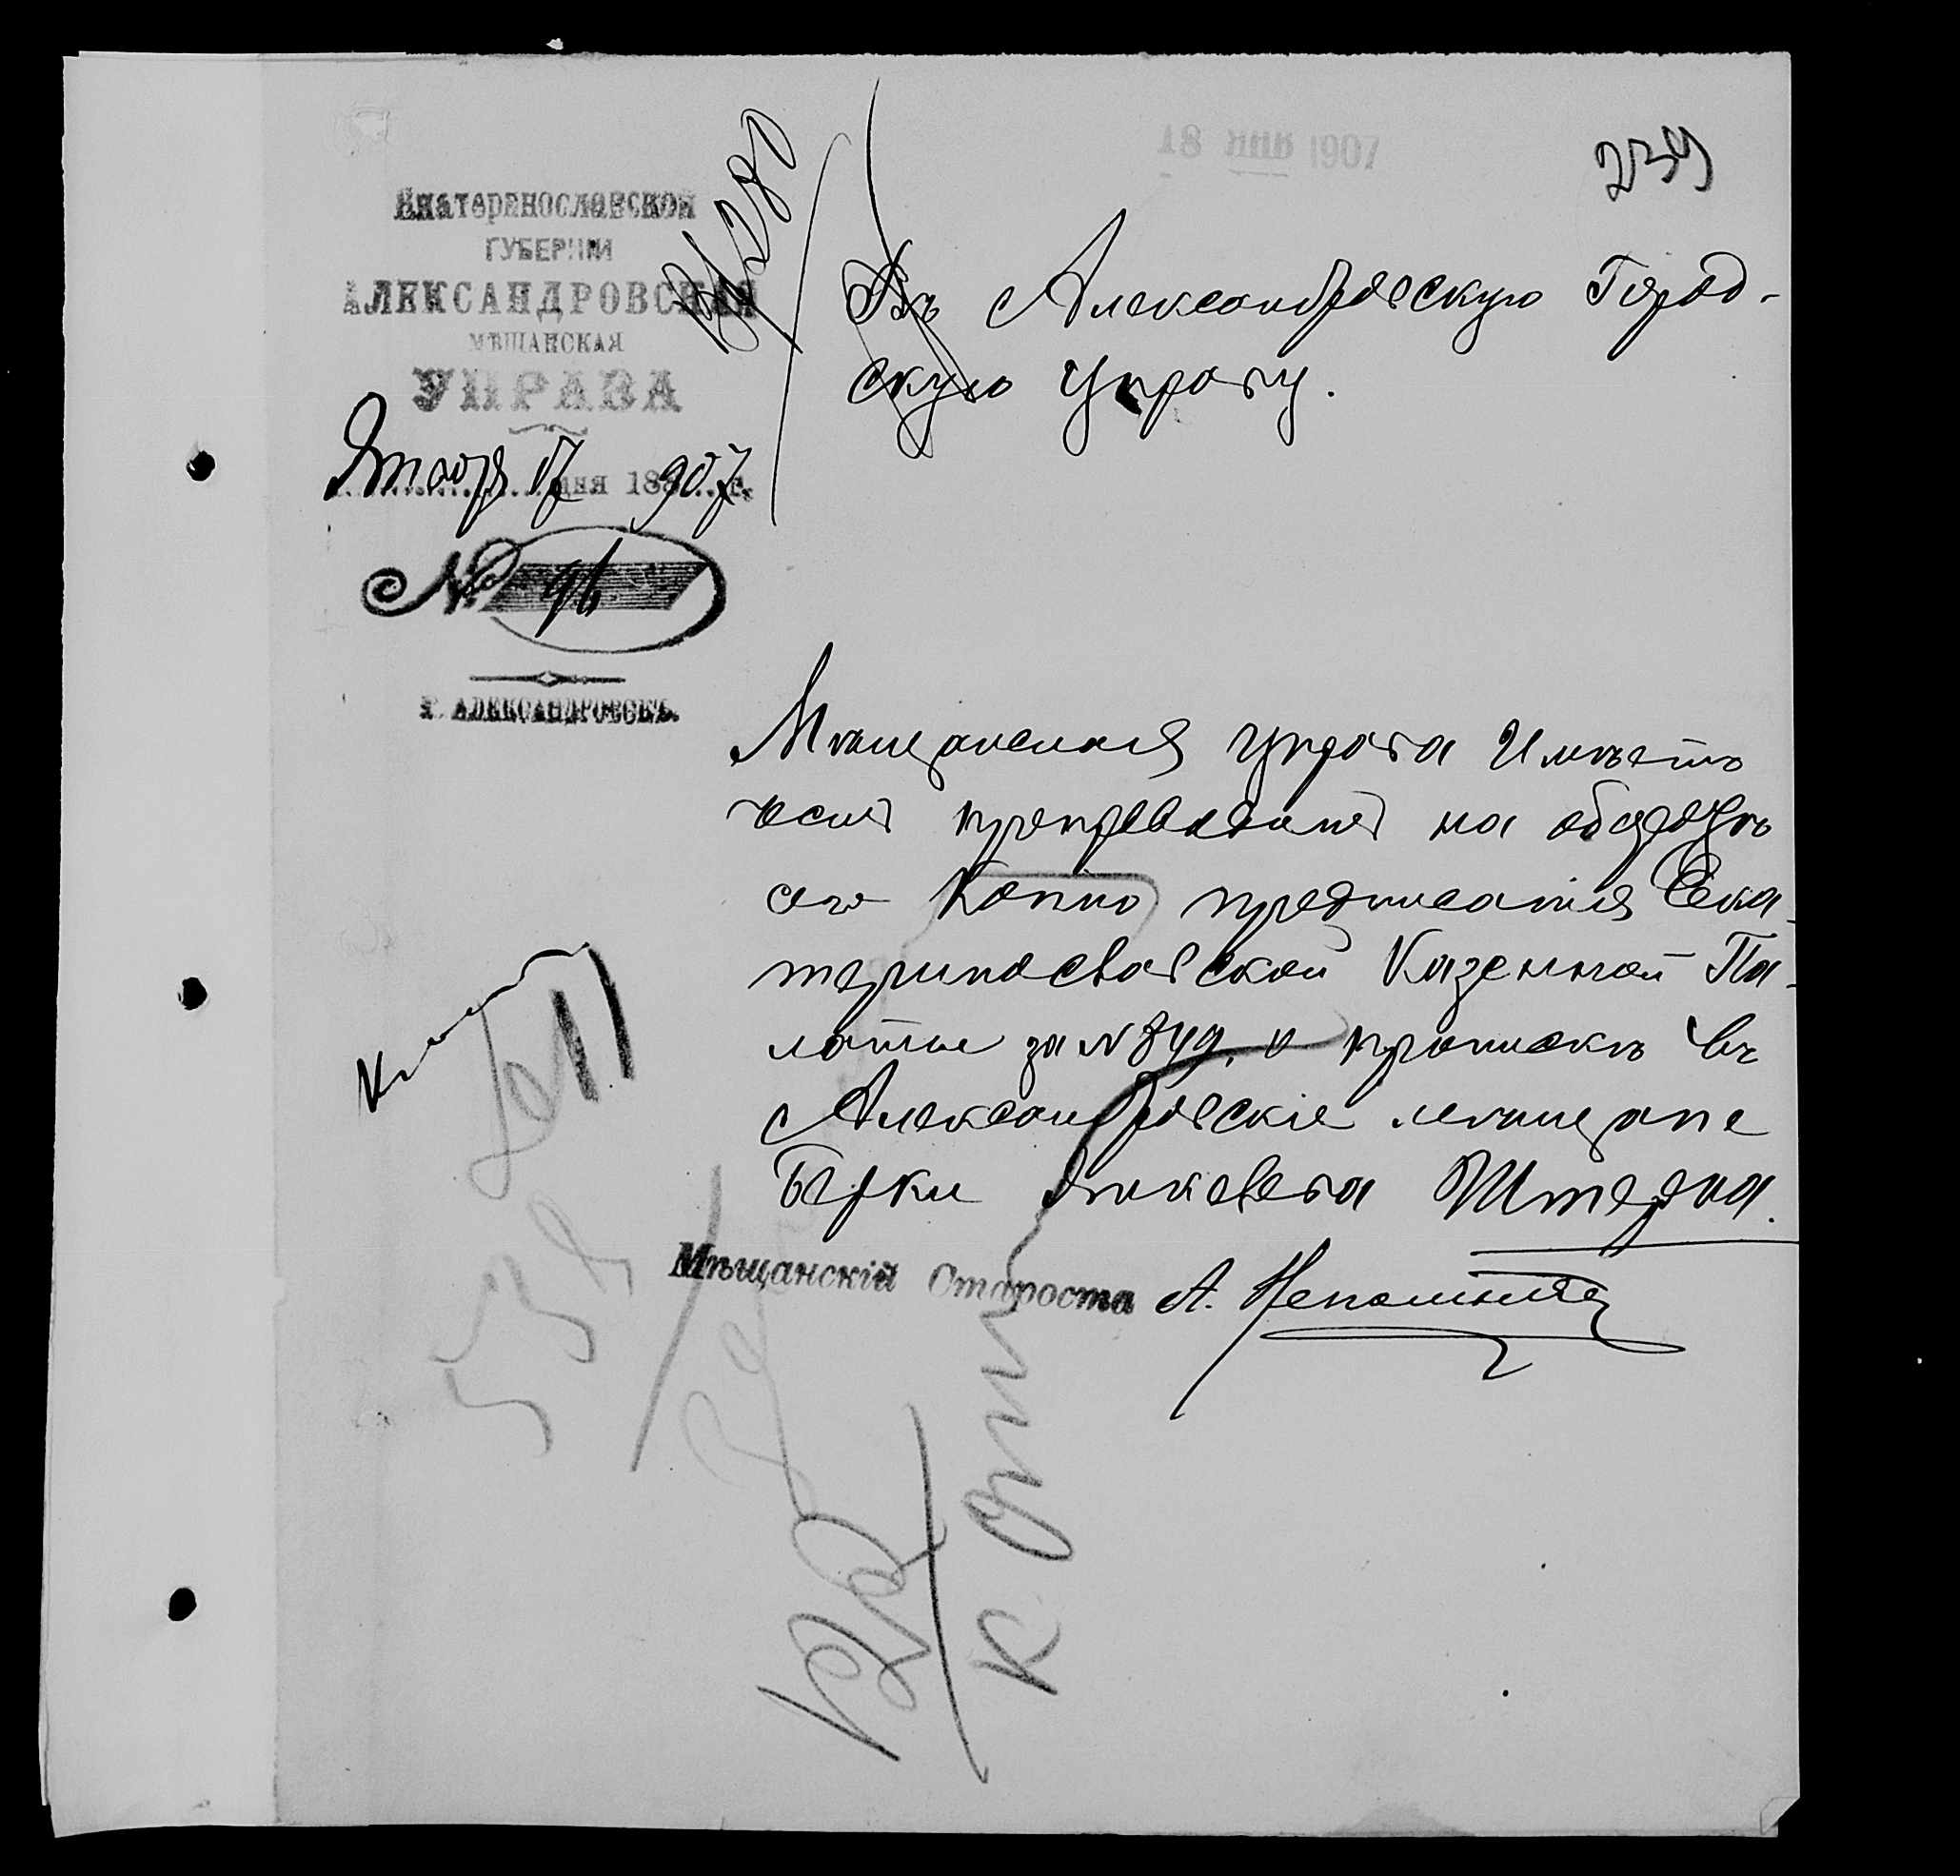 18 ЯНВ 1907
239
Екатеринославской
ГУБЕРНІИ
АЛЕКСАНДРОВСКАЯ
МѢЩАНСКАЯ
УПРАВА
Января 17 дня 1907 г.
№ 96
Г. АЛЕКСАНДРОВСКЪ.
Въ Александровскую Город-
скую Управу.
Мѣщанская управа Имѣетъ
честь препроводить на обороте
сего Копію предписанія Ека-
теринославской Казенной Па-
латы за № 849, о припискѣ въ
Александровскіе мѣщане
Берки Янкелева Штерна.
Мѣщанскій Староста А.